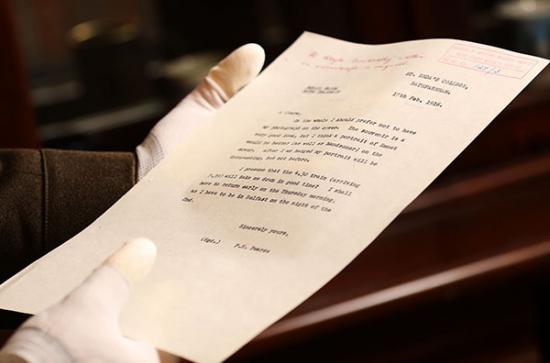 St. ENDA'S COLLEGE,
RATHFARNHAM.
17th Feb. 1916.
On the whole I should prefer not to have
my photograph on the cover. The souvenir is a
very good idea, but I think a portrait of Emmet
would be better (as well as handsomer) on the
cover. After I am hanged my portrait will be
interesting, but not before.
I presume that the 4.30 train (arriving
will take me down in good time? I shall
have to return early on the Thursday morning,
as I have to be in Belfast on the night of the
2nd.
Sincerely yours,
(Sgd.) P.H. Pearse